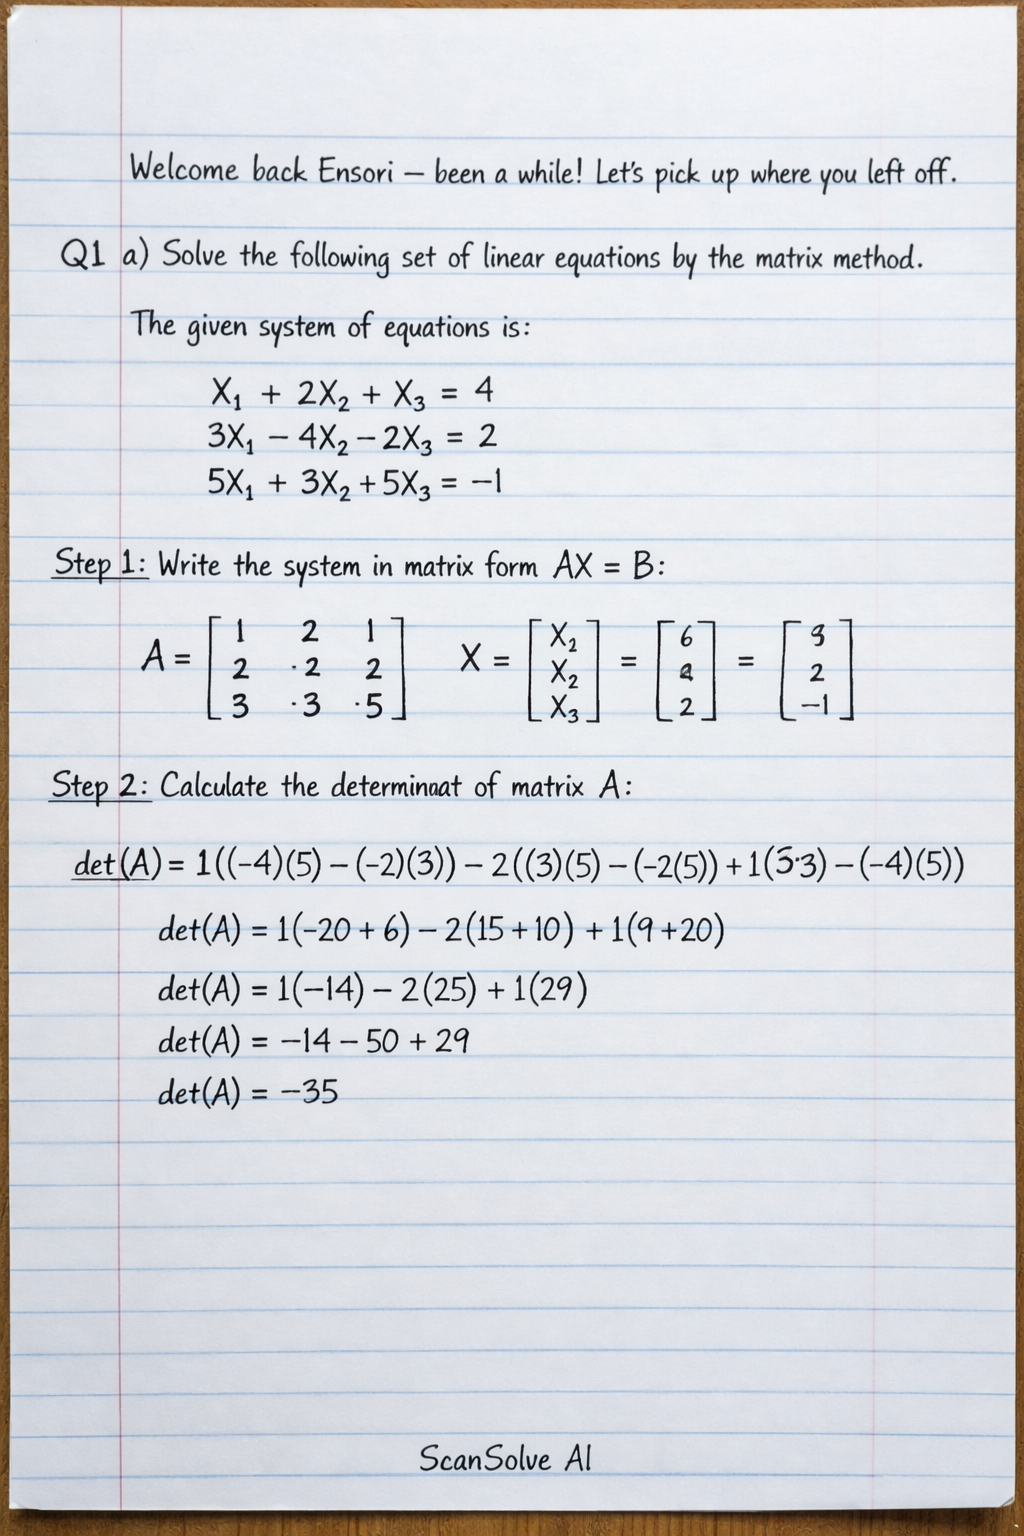 Welcome back Ensori — been a while! Let's pick up where you left off.
Q1 a) Solve the following set of linear equations by the matrix method.
The given system of equations is:
X₁ + 2X₂ + X₃ = 4
3X₁ − 4X₂ − 2X₃ = 2
5X₁ + 3X₂ + 5X₃ = −1
Step 1: Write the system in matrix form AX = B:
A = [1 2 1] X = [X₂] = [6] = [9]
[2 ·2 2] [X₂] [2]
[3 ·3 ·5] [X₃] [2] [−1]
Step 2: Calculate the determinaat of matrix A:
det(A) = 1((−4)(5) − (−2)(3)) − 2((3)(5) − (−2(5)) + 1(3·3) − (−4)(5))
det(A) = 1(−20 + 6) − 2(15 + 10) + 1(9 + 20)
det(A) = 1(−14) − 2(25) + 1(29)
det(A) = −14 − 50 + 29
det(A) = −35
ScanSolve AI